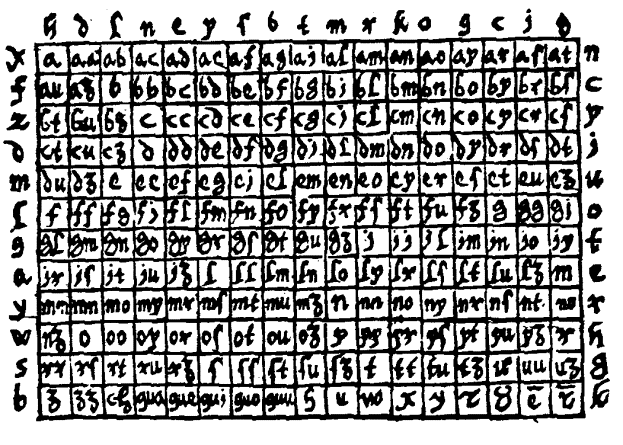 h d l n e y f b t m r k o g c j
x a aa ab ac ad ae af ag aj al am an ao ap ar as at n
f au az b bb bc bd be bf bg bj bl bm bn bo bp br bs c
z bt bu bz c cc cd ce cf cg cj cl cm cn co cp cr cs y
d ct cu cz d dd de df dg dj dl dm dn do dp dr ds dt j
m du dz e ee ef eg ej el em en eo ep er es et eu ez u
l f ff fg fj fl fm fn fo fp fr fs ft fu fz g gg gj o
g gl gm gn go gp gr gs gt gu gz j jj jl jm jn jo jp t
a jr js jt ju jz l ll lm ln lo lp lr ls lt lu lz m e
y mm mn mo mp mr ms mt mu mz n nn no np nr ns nt nu r
w nz o oo op or os ot ou oz p pp pr ps pt pu pz r h
s rr rs rt ru rz s ss st su sz t tt tu tz u uu uz g
b z zz ch qua que quj quo quu h u w x y k